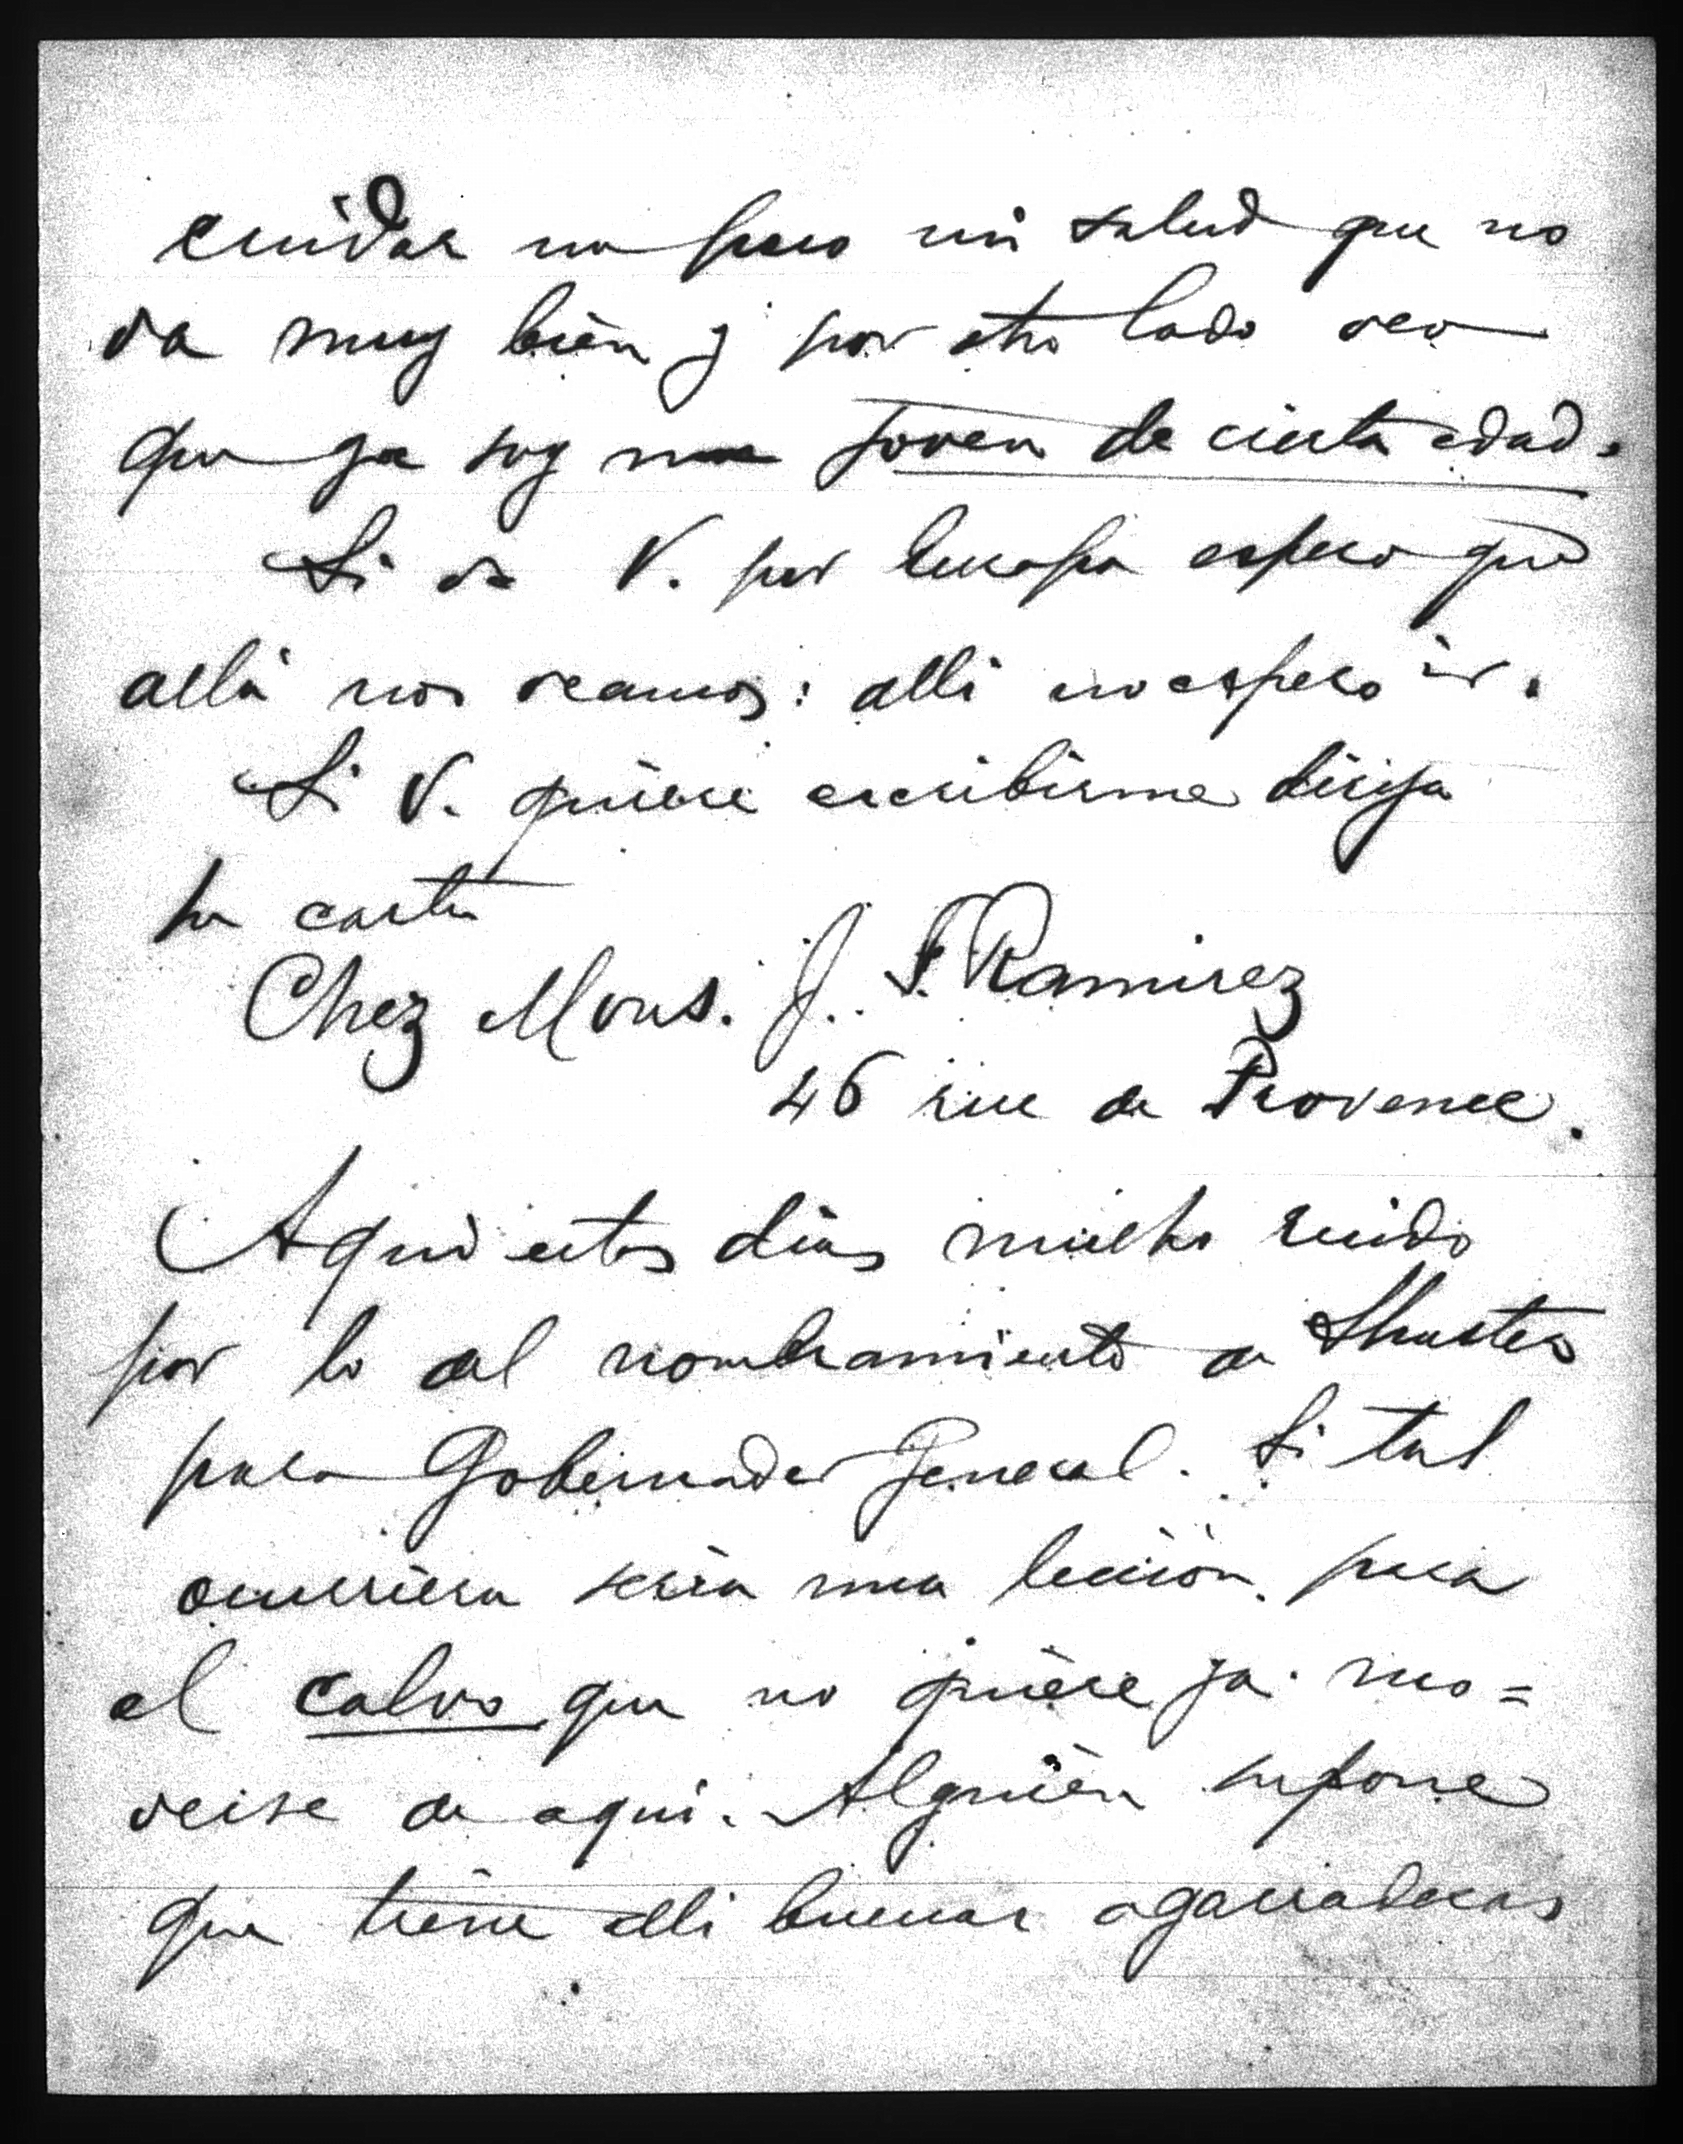 cuidar un poco mi salud que no
va muy bien y por otro lado veo
que ya soy un joven de cierta edad.
Si va V. por Europa espero que
allá nos veamos: alli no espero ir.
Si V. quiere escribirme dirija
su carta
Chez Mons. J. F. Ramirez
46 rue de Provence.
Aqui estos dias mucho ruido
por lo del nombramiento de Shuster
para Gobernador General. Si tal
ocurriera seria una lección para
el calvo que no quiere ya mo=
verse de aqui. Alguién supone
que tiene alli buenas agarraderas